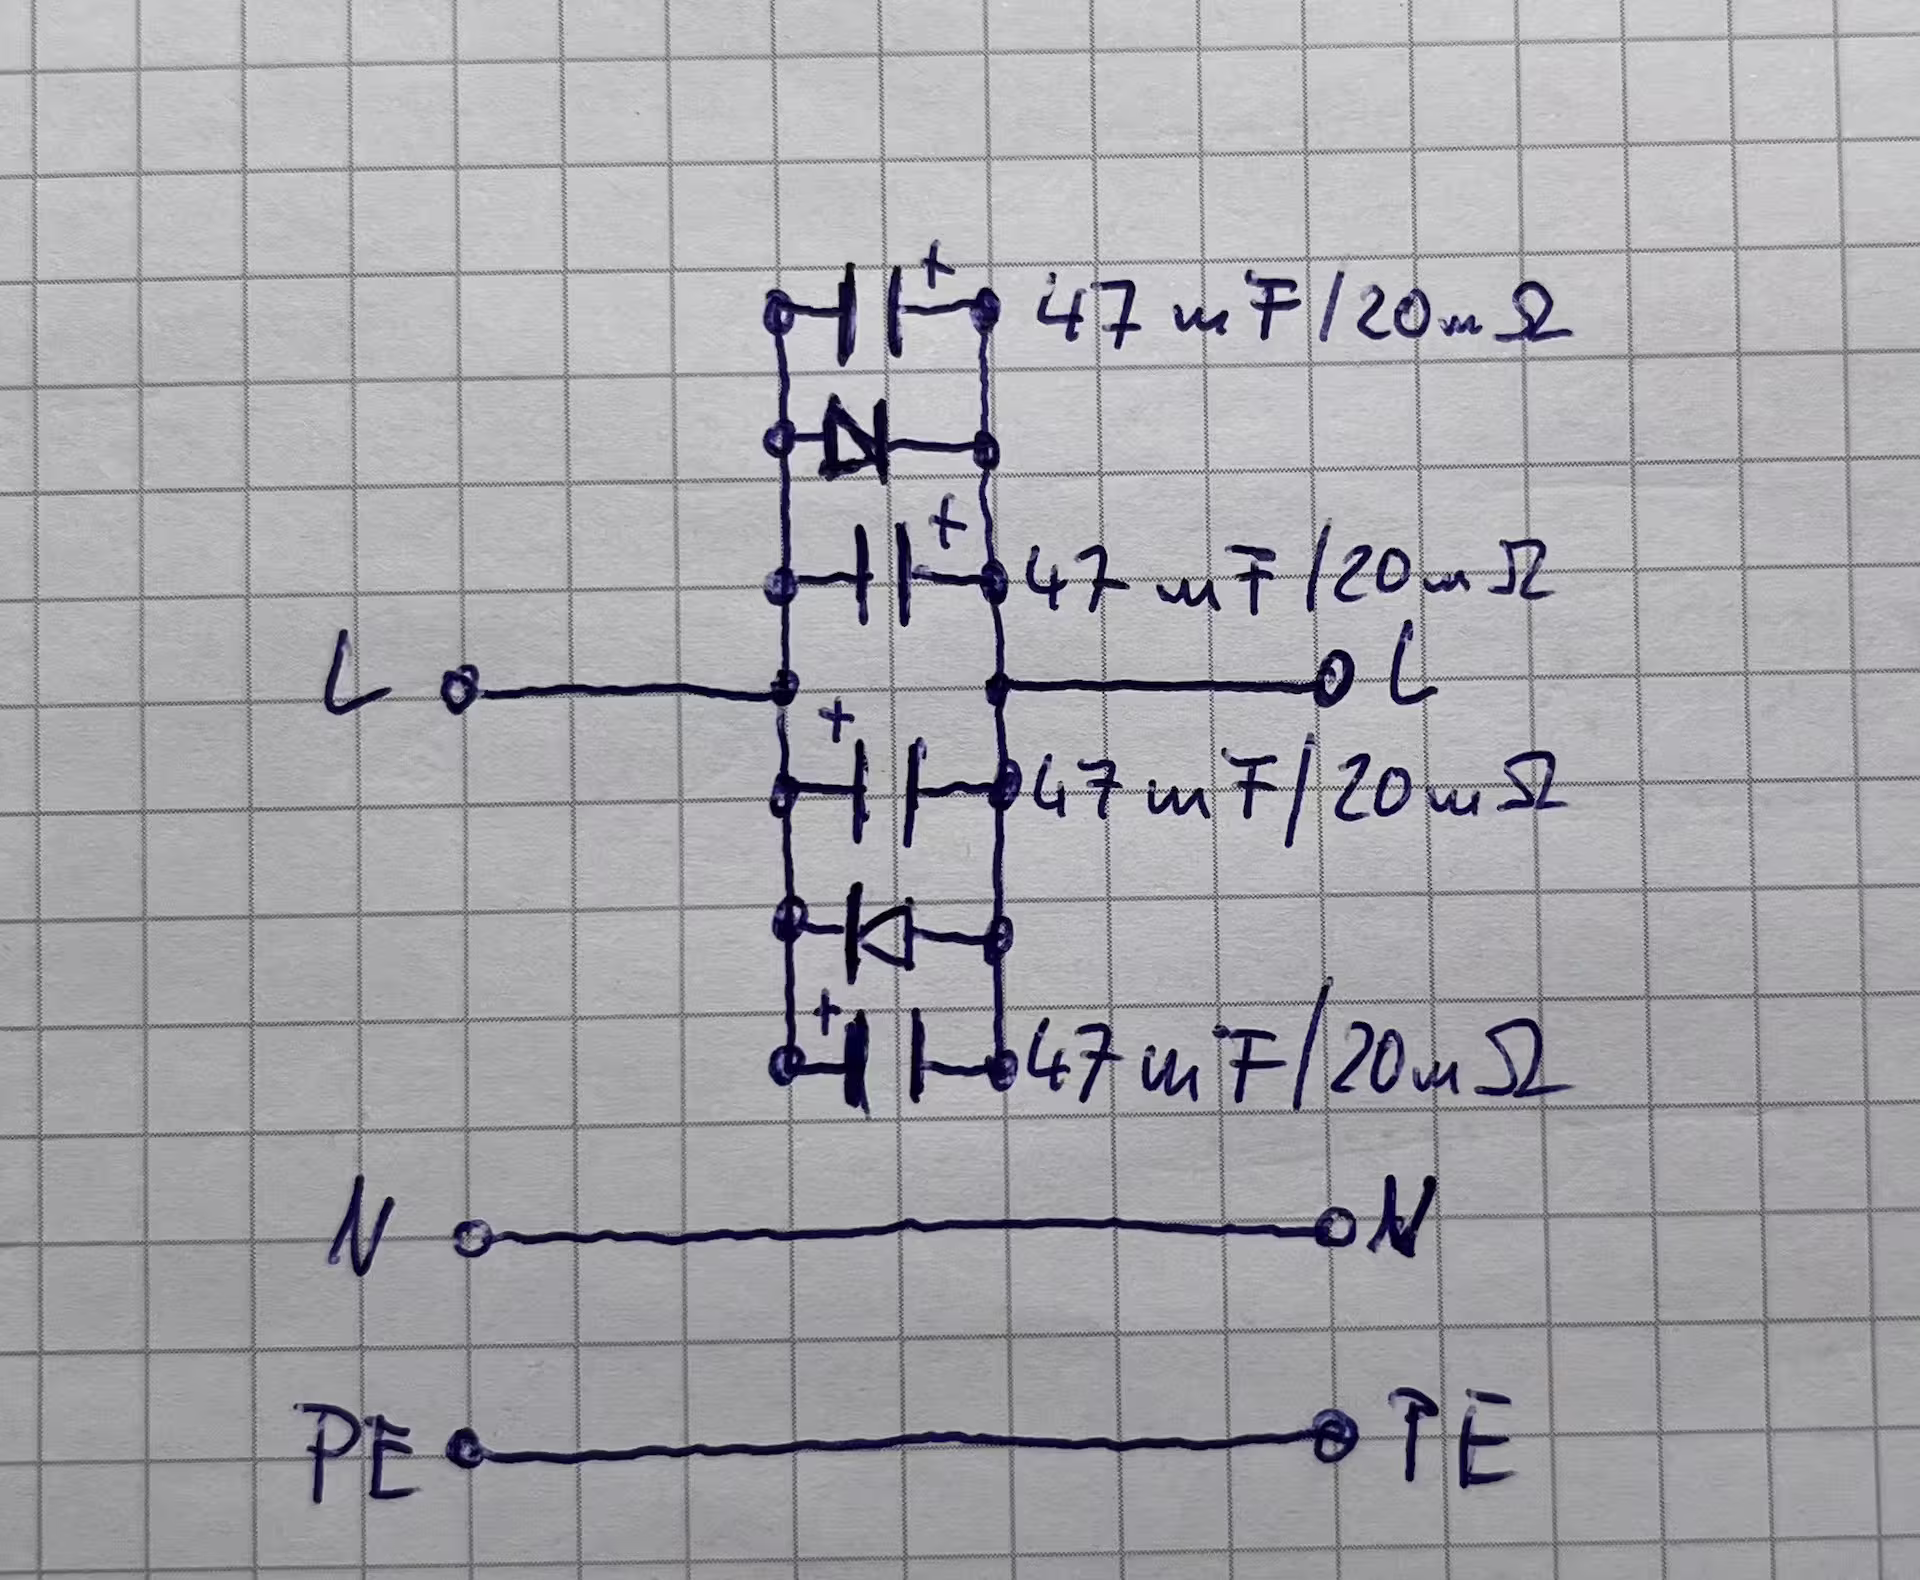 + 47 mF/20mΩ
+ 47 mF/20mΩ
L L
+ 47 mF/20mΩ
+ 47 mF/20mΩ
N N
PE PE